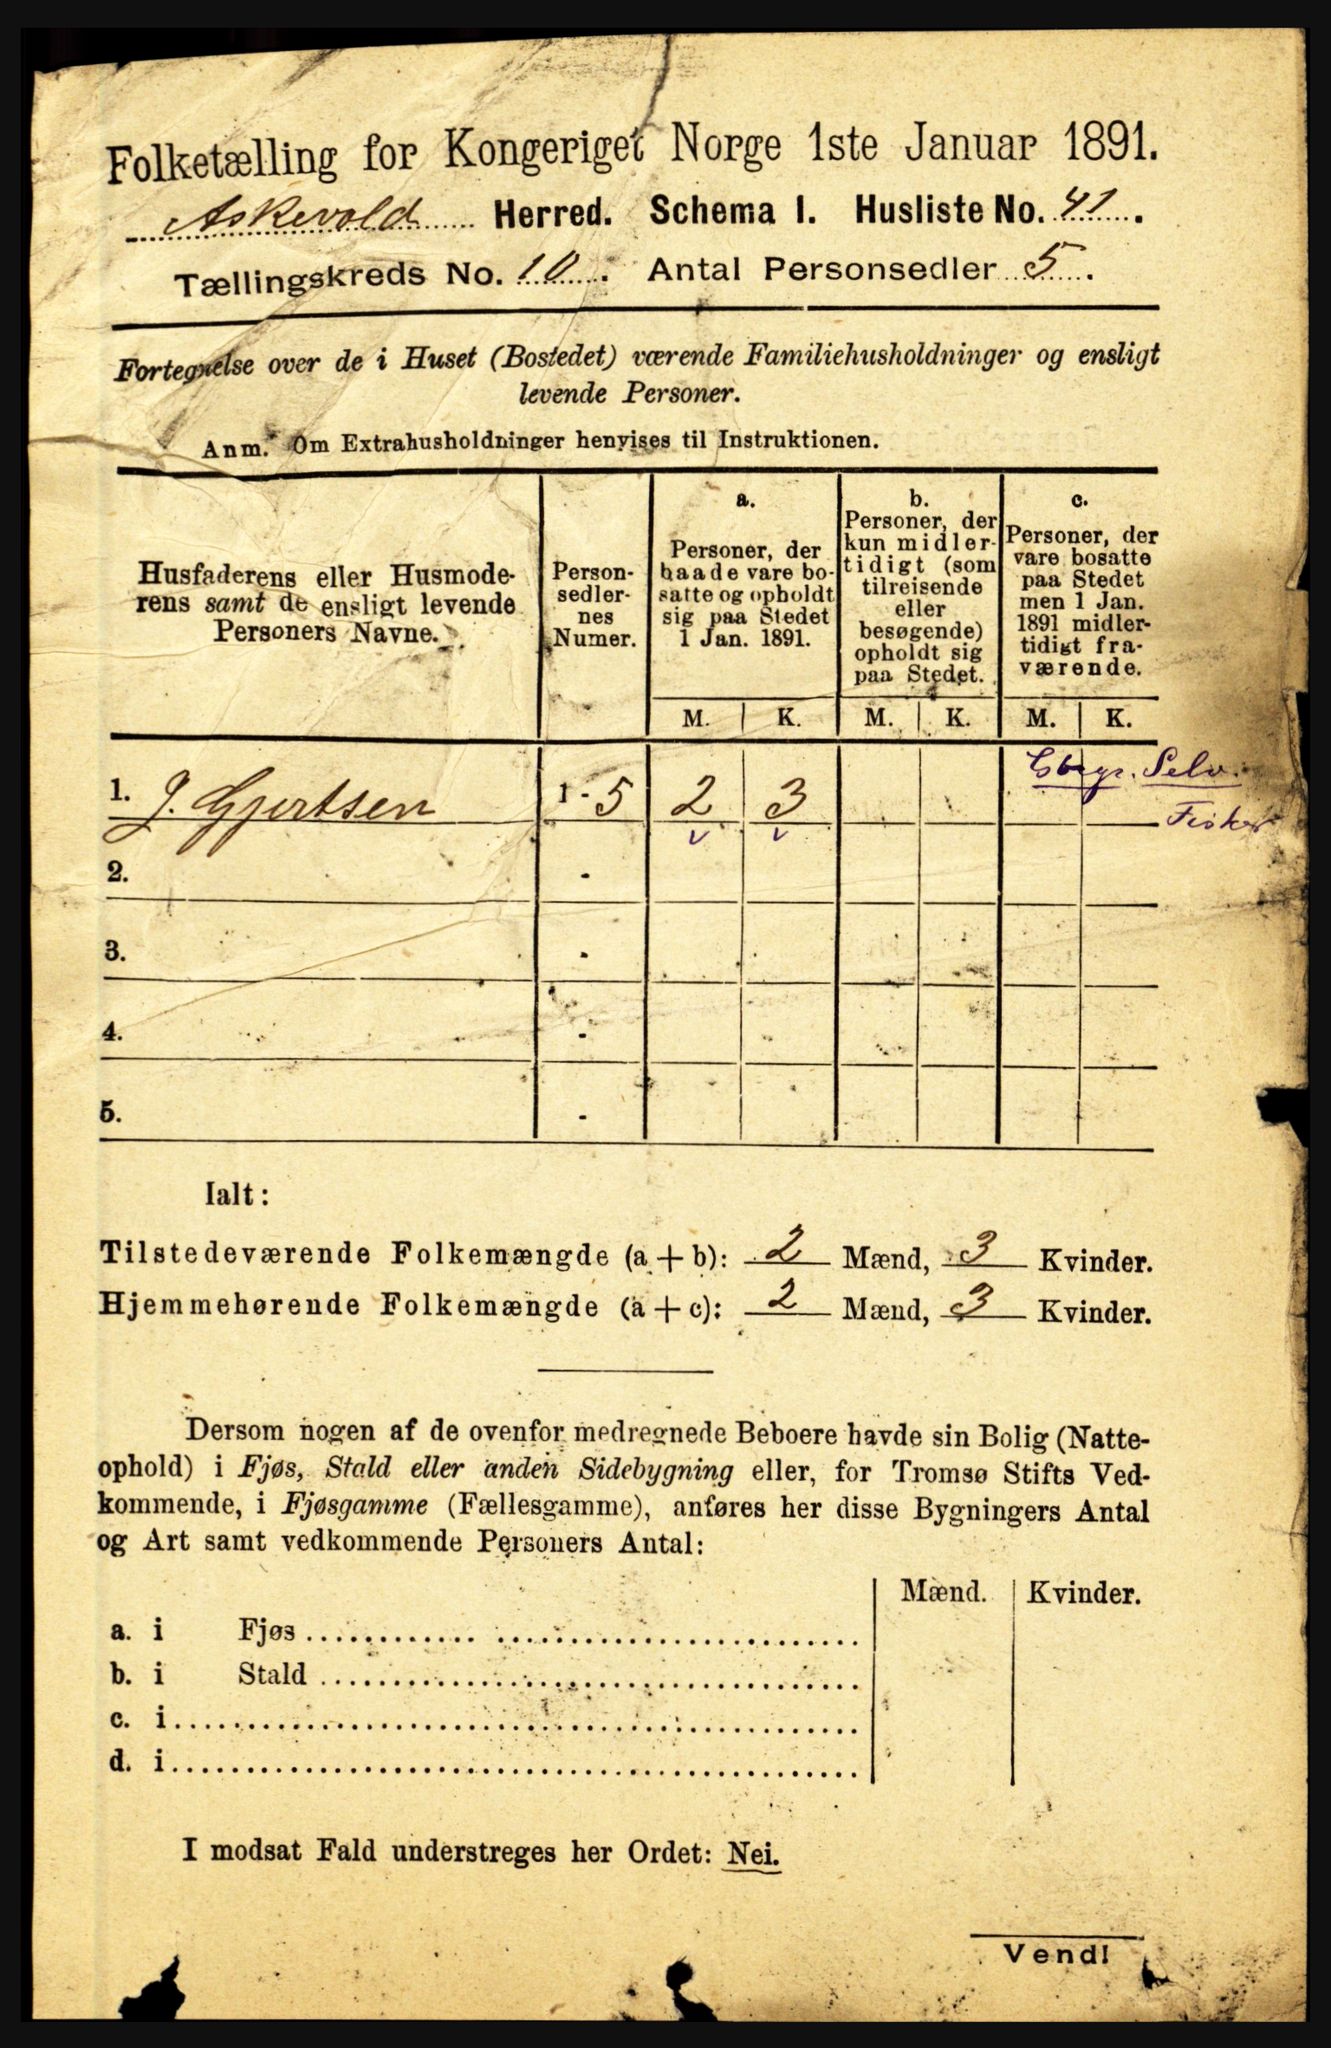 Folketælling for Kongeriget Norge 1ste Januar 1891.
Askevold Herred. Schema I. Husliste No. 41.
Tællingskreds No. 10. Antal Personsedler 5.
Fortegnelse over de i Huset (Bostedet) værende Familiehusholdninger og ensligt
levende Personer.
Anm. Om Extrahusholdninger henvises til Instruktionen.
Husfaderens eller Husmode-
rens samt de ensligt levende
Personers Navne.
Person-
sedler-
nes
Numer.
a.
Personer, der
baade vare bo-
satte og opholdt
sig paa Stedet
1 Jan. 1891.
b.
Personer, der
kun midler-
tidigt (som
tilreisende
eller
besøgende)
opholdt sig
paa Stedet.
c.
Personer, der
vare bosatte
paa Stedet
men 1 Jan.
1891 midler-
tidigt fra-
værende.
M. K. M. K. M. K.
Gbrgr. Selv.
1. J. Gjertsen 1 - 5 2 3
v v
Fisker
2. -
3. -
4. -
5. -
Ialt:
Tilstedeværende Folkemængde (a + b): 2 Mænd, 3 Kvinder.
Hjemmehørende Folkemængde (a + c): 2 Mænd, 3 Kvinder.
Dersom nogen af de ovenfor medregnede Beboere havde sin Bolig (Natte-
ophold) i Fjøs, Stald eller anden Sidebygning eller, for Tromsø Stifts Ved-
kommende, i Fjøsgamme (Fællesgamme), anføres her disse Bygningers Antal
og Art samt vedkommende Personers Antal:
Mænd. Kvinder.
a. i Fjøs
b. i Stald
c. i
d. i
I modsat Fald understreges her Ordet: Nei.
Vend!